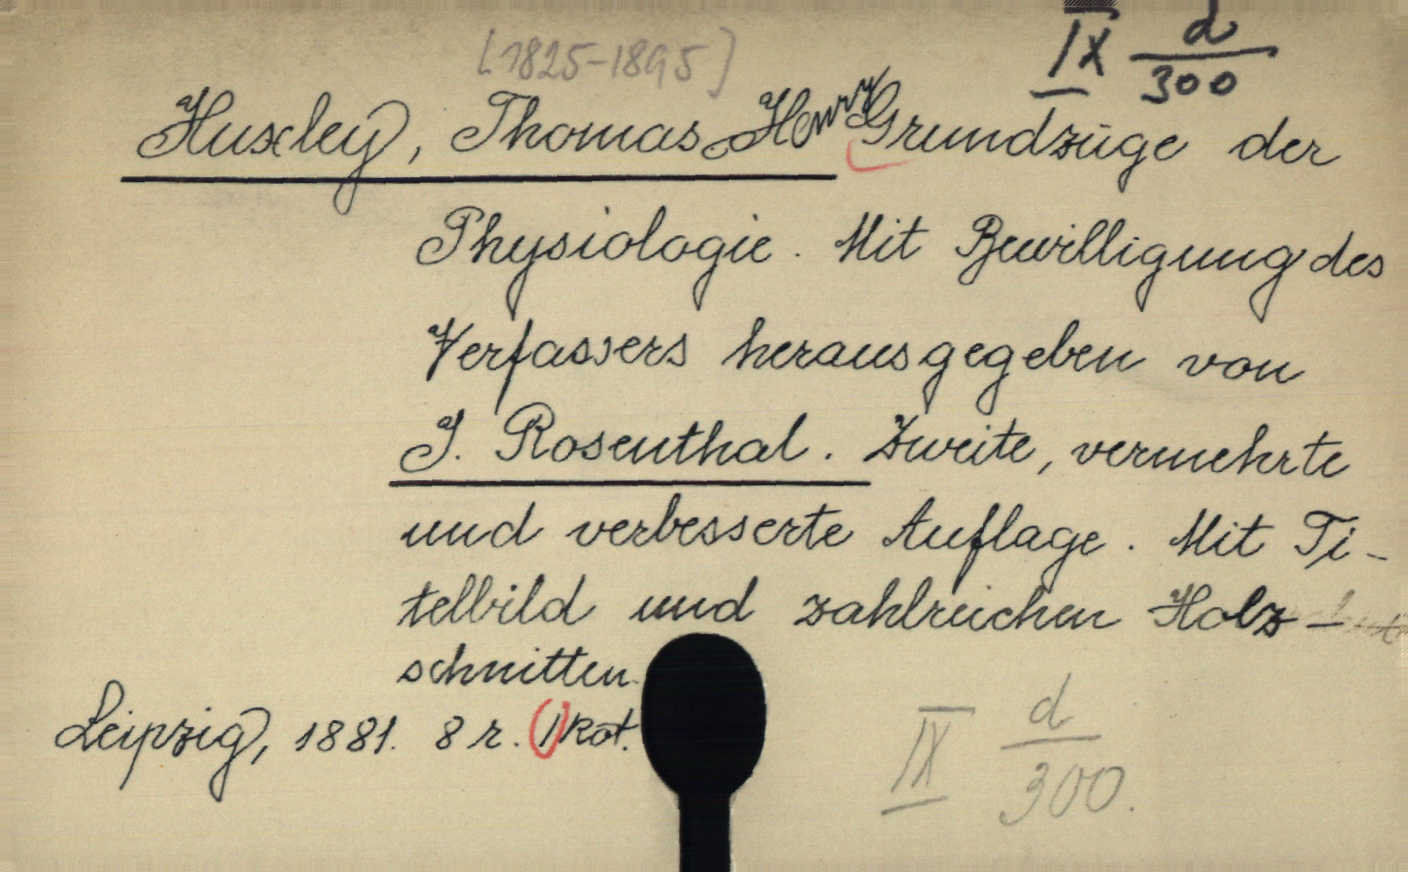 [1825-1895]
IX d/300
Huxley, Thomas Henry Grundzüge der
Physiologie. Mit Bewilligung des
Verfassers herausgegeben von
J. Rosenthal. Zweite, vermehrte
und verbesserte Auflage. Mit Ti-
telbild und zahlreichen Holz-
schnitten.
Leipzig, 1881. 8 r. 1 köt.
IX d/300.